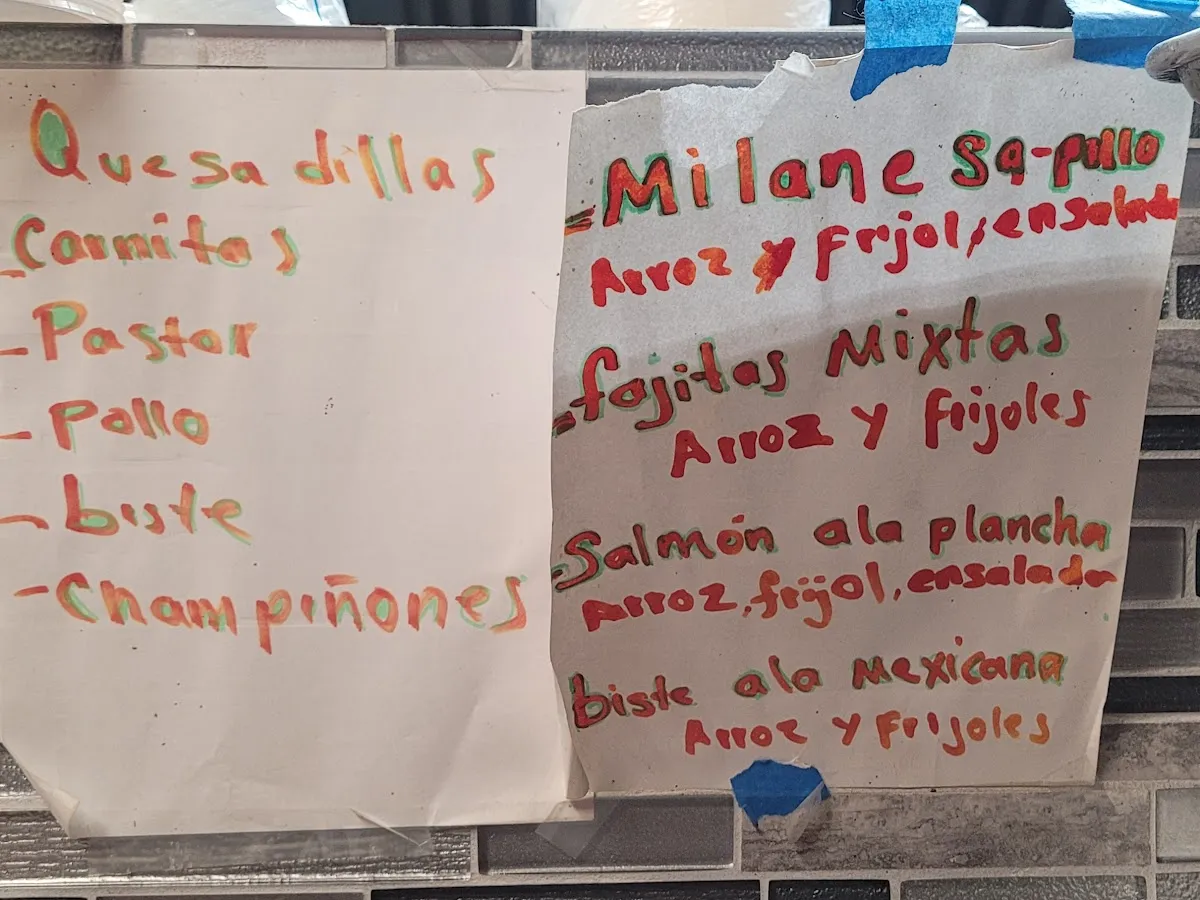 Quesadillas
- Carnitas
- Pastor
- Pollo
- biste
- Champiñones
- Milanesa-pollo
Arroz y Frijol, ensalada
- fajitas Mixtas
Arroz y frijoles
- Salmón ala plancha
Arroz, frijol, ensalada
biste ala Mexicana
Arroz y Frijoles